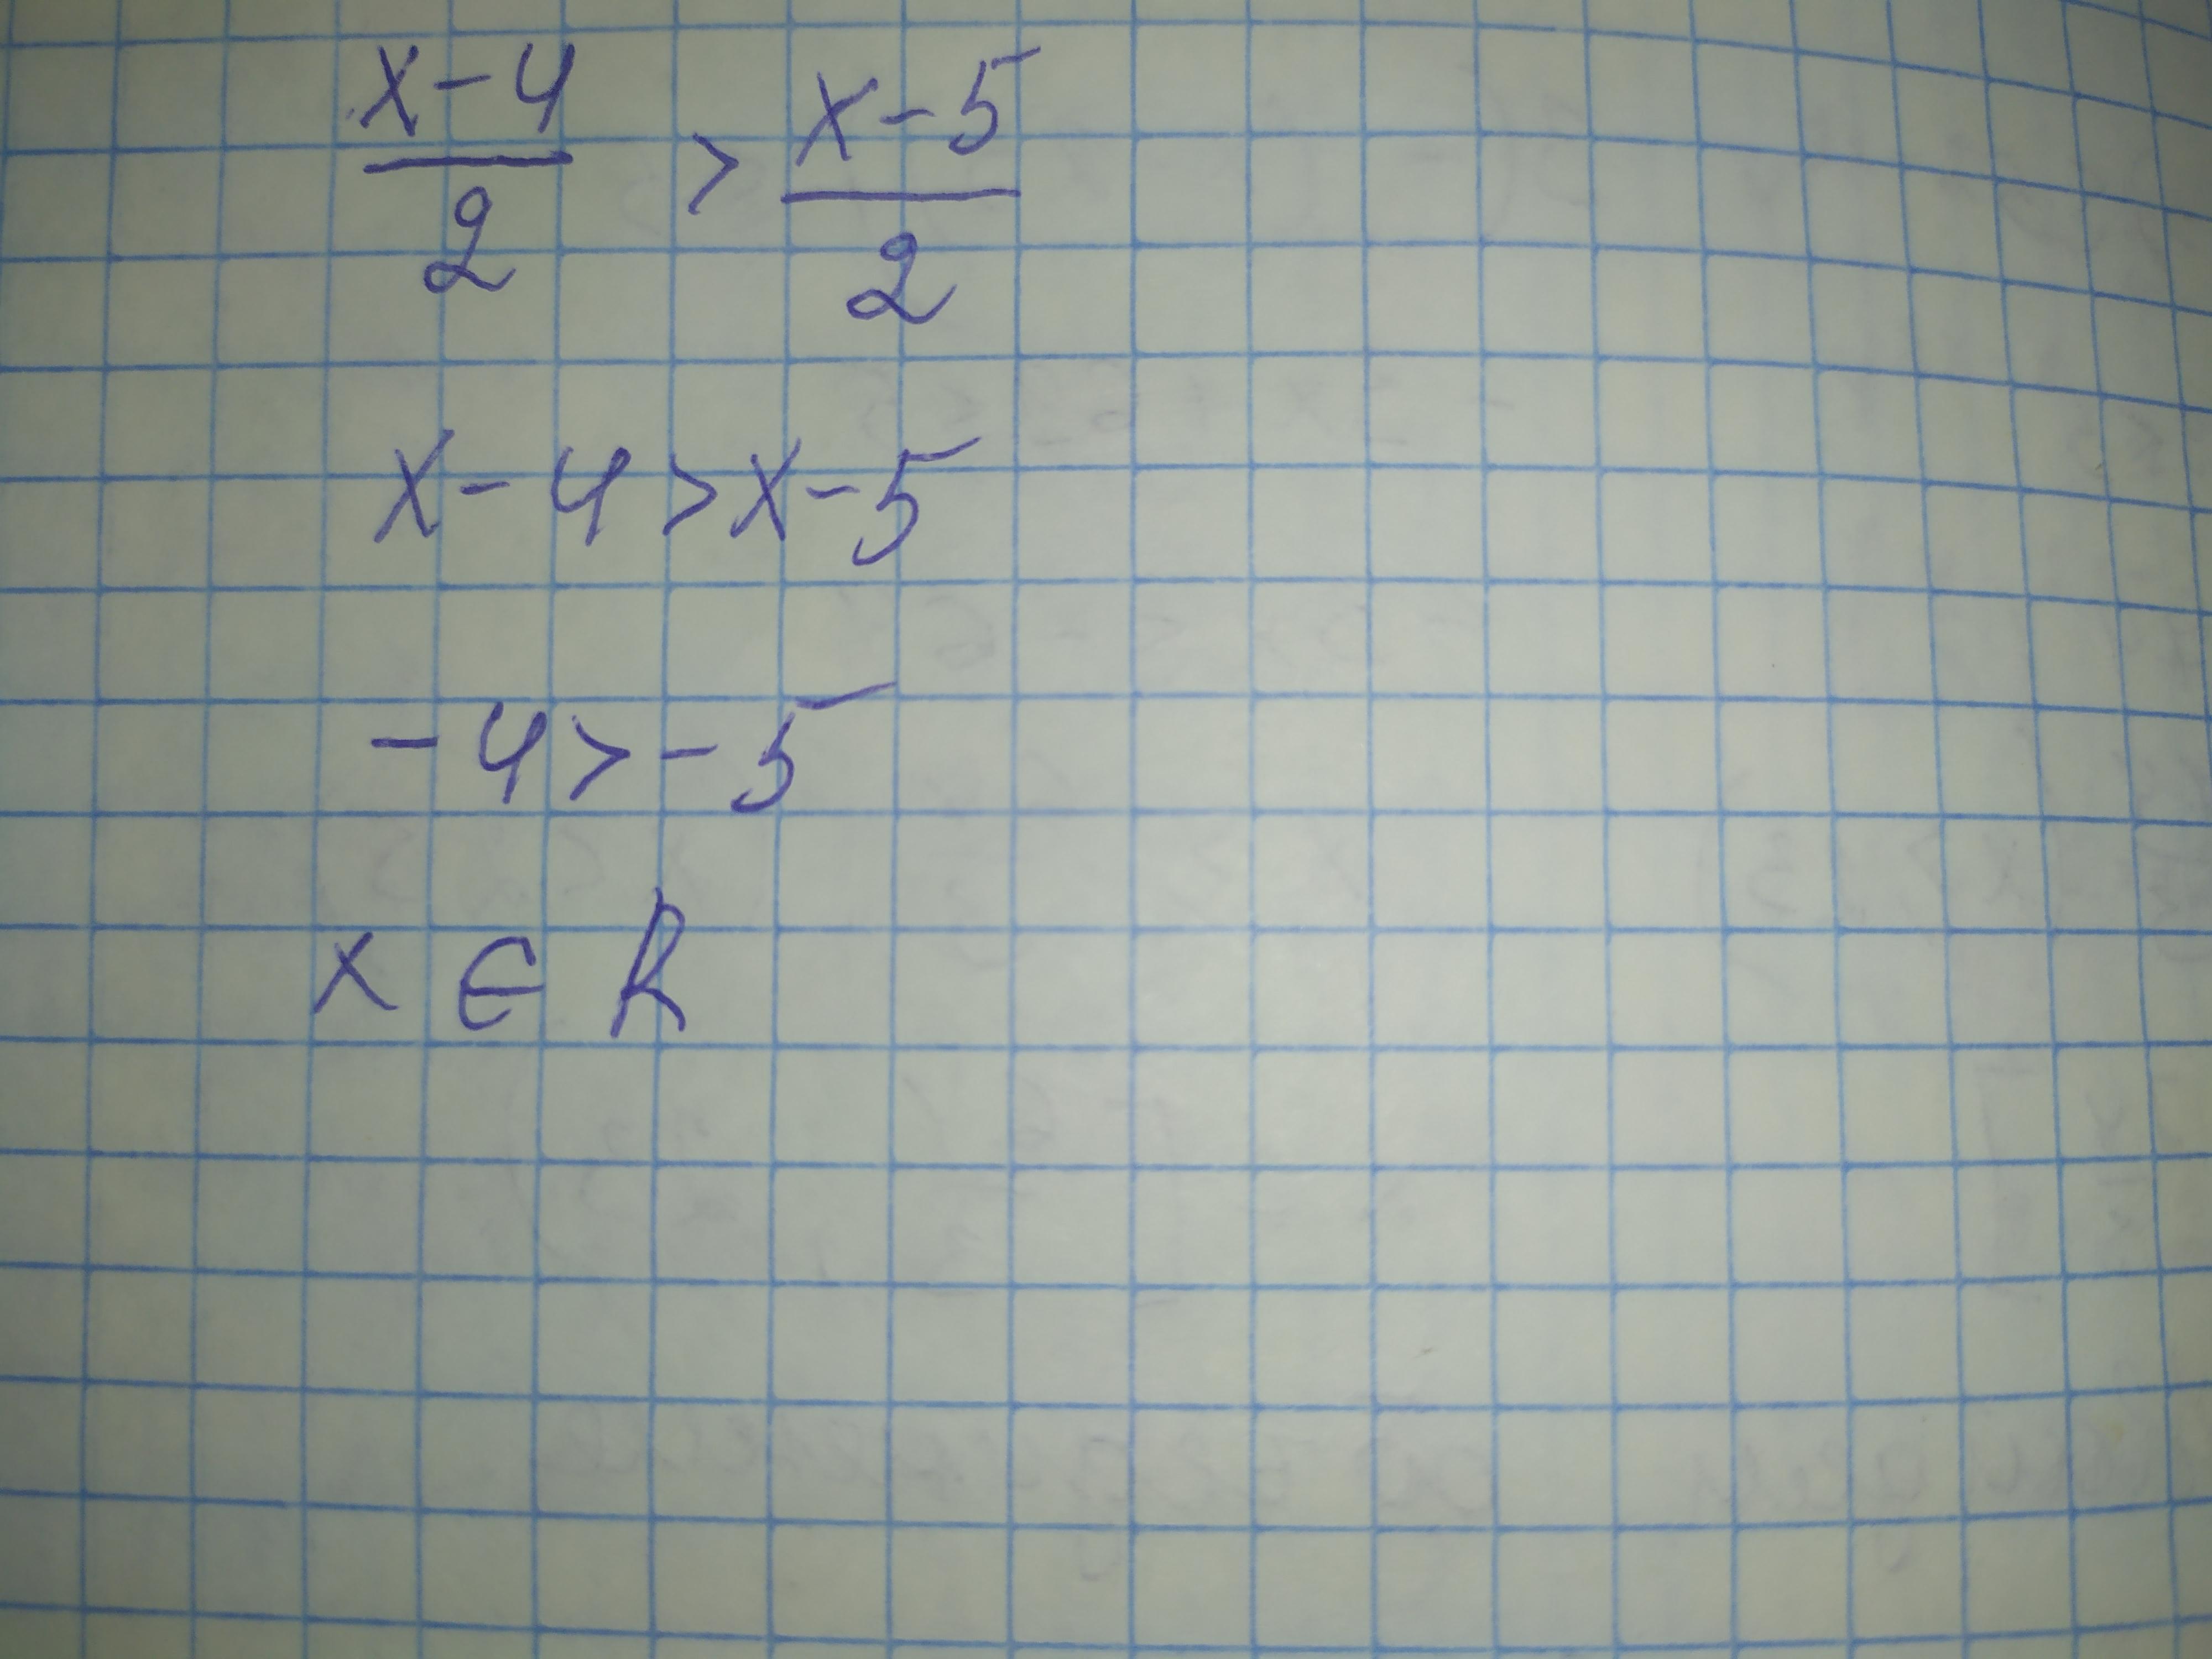 x-4/2 > x-5/2
x-4>x-5
-4>-5
x ∈ R